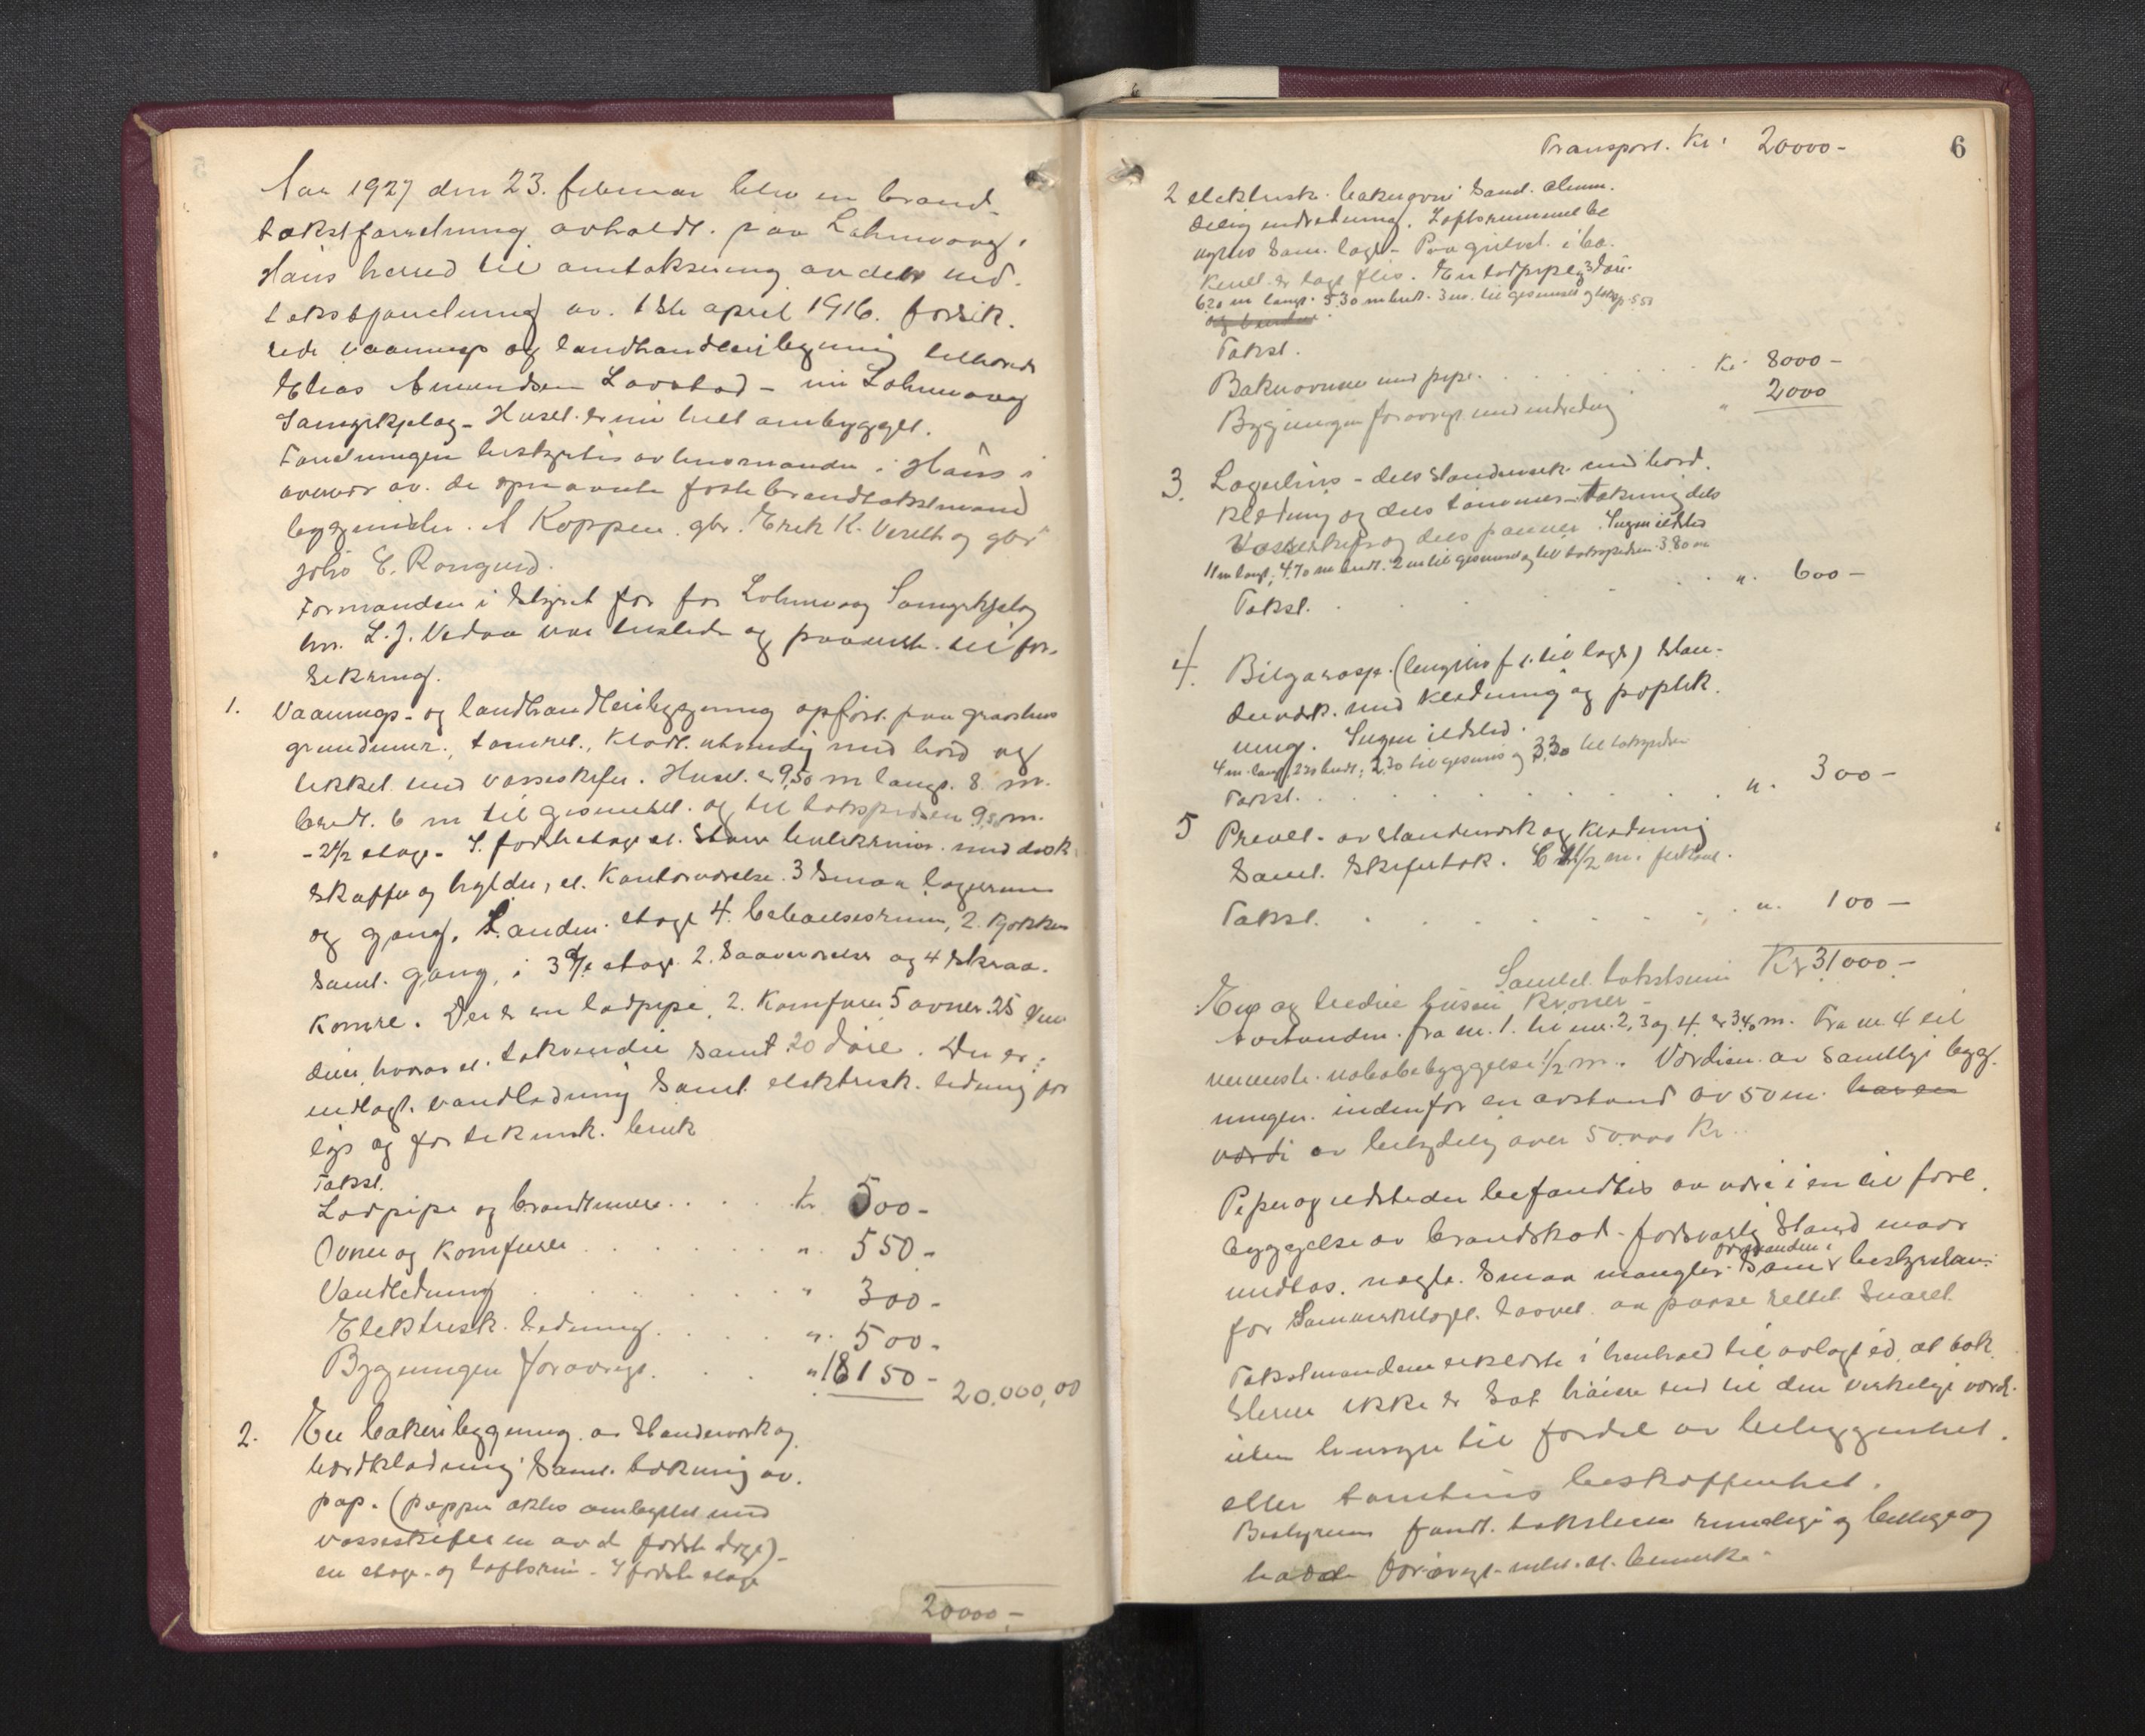 Aar 1927 den 23. februar blev en brand-
takstforretning avholdt paa Lohnevaag,
Haus herred til omtaksering av den ved
takstforretning av 1ste april 1916 forsik-
rede vaanings og landhandleribygning tilhørende
Elias Amundsen Lavstad - nu Lohnevaag
Samyrkjelag - Huset er nu helt ombygget.
Forretningen bestyrtes av lensmanden i Haus i
overvær av de opnævnte faste brandtakstmænd
bygmester A Koppen, gbr. Erik K. Veseth og gbr
Johs E. Romgued.
Formanden i styret for for Lohnevaag Samyrkjelag
hr. L. J. Vedaa var tilstede og paaviste til for-
sikring.
1. Vaanings- og landhandleribygning opført paa graastens
grundmur, tømret, klædt utvendig med bord og
tækket med vosseskifer. Huset er 9,50 m langt 8 m.
bredt. 6 m til gesimset og til takspidsen 9,50 m.
- 2½ etage - I første etage et stort butikrum med disk
skuffer og hylder, et kontorværelse 3 smaa lagerrum
og gang. I anden etage 4 beboelsesrum, 2 kjøkken
samt gang, i 3dje etage 2 soveværelser og 4 skraa-
komre. Der er en lodpipe, 2 komfurer 5 ovner 25 vin
duer, hvorav et takvindu samt 20 døre. Der er
indlagt vandledning samt elektrisk ledning for
lys og for teknisk bruk
Takst.
Lodpipe og brandmure . . . . kr 500 -
Ovner og komfurer . . . . . . " 550 -
Vandledning . . . . . . " 300 -
Elektrisk ledning . . . . " 500 -
Bygningen forøvrigt . . . " 18150 - 20.000,00
2. En bakeribygning av stenderverk og
bordklædning samt tækning av
pap. (pappen aktes ombyttet med
vosseskifer en av de første dage) -
en etage og loftsrum - I første etage
20000 -
6
Transport. Kr: 20000 -
2 elektrisk bakerovn samt alminn-
delig indredning. Loftsrummet be
nyttes som lager - Paa gulvet i ba-
keriet er lagt flis. En lodpipe, 3 døre
6,20 m langt. 5,30 m bredt. 3 m. til gesimset og taksp. 5,50
Takst.
Bakerovnen med pipe . . . . . . . Kr. 8000 -
Bygningen forøvrigt med indredning " 2000
3. Lagerhus - dels stenderverk med bord-
klædning og dels tømmer - tækning dels
vosseskifer og dels panner. Ingen ildsted
11 m langt, 4,70 m bredt. 2 m til gesimset og til takspidsen 3,80 m
Takst. . . . . . . " 600 -
4. Bilgarasje (benyttes f. t. til lager) sten-
derverk med klædning og paptæk-
ning. Ingen ildsted.
4 m. langt, 2,30 bredt, 2,30 til gesims og 3,30 til takspidsen
Takst. . . . . . . . . " 300 -
5 Privet - av stenderverk og klædning
samt skifertak. C 1½ m. i firkant.
Takst. . . . . . . . " 100 -
Samlet takstsum Kr 31000 -
En og tredive tusen kroner -
Avstanden fra nr. 1 til nr. 2, 3 og 4 er 3,40 m. Fra nr 4 til
nærmeste nabobebyggelse ½ m. Værdien av samtlige byg-
ninger indenfor en avstand av 50 m. har en
værdi av betydelig over 50.000 Kr.
Piper og ildsteder befandtes at være i en til fore-
byggelse av brandskade forsvarlig stand naar
undtas nogle smaa mangler som formanden i bestyrelsen
for Samyrkelaget lovet at paase rettet snarest.
Takstmændene erklærte i henhold til avlagt ed, at tak-
sterne ikke er sat høiere end til den virkelige værdi
uten hensyn til fordel av beliggenhet.
eller tomtens beskaffenhet.
Bestyreren fandt taksterne rimelige og billige og
hadde forøvrigt intet at bemerke -